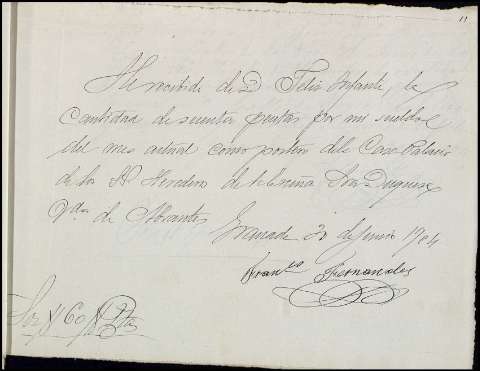 11
He recibido de D Felix Infante, la
Cantidad de sesenta pesetas por mi sueldo
del mes actual como portero del Casa Palacio
de los Herederos de la Duquesa
Vda de Abrantes
Granada 30 de Junio 1904
Franco Fernandez
Son 60 Ptas